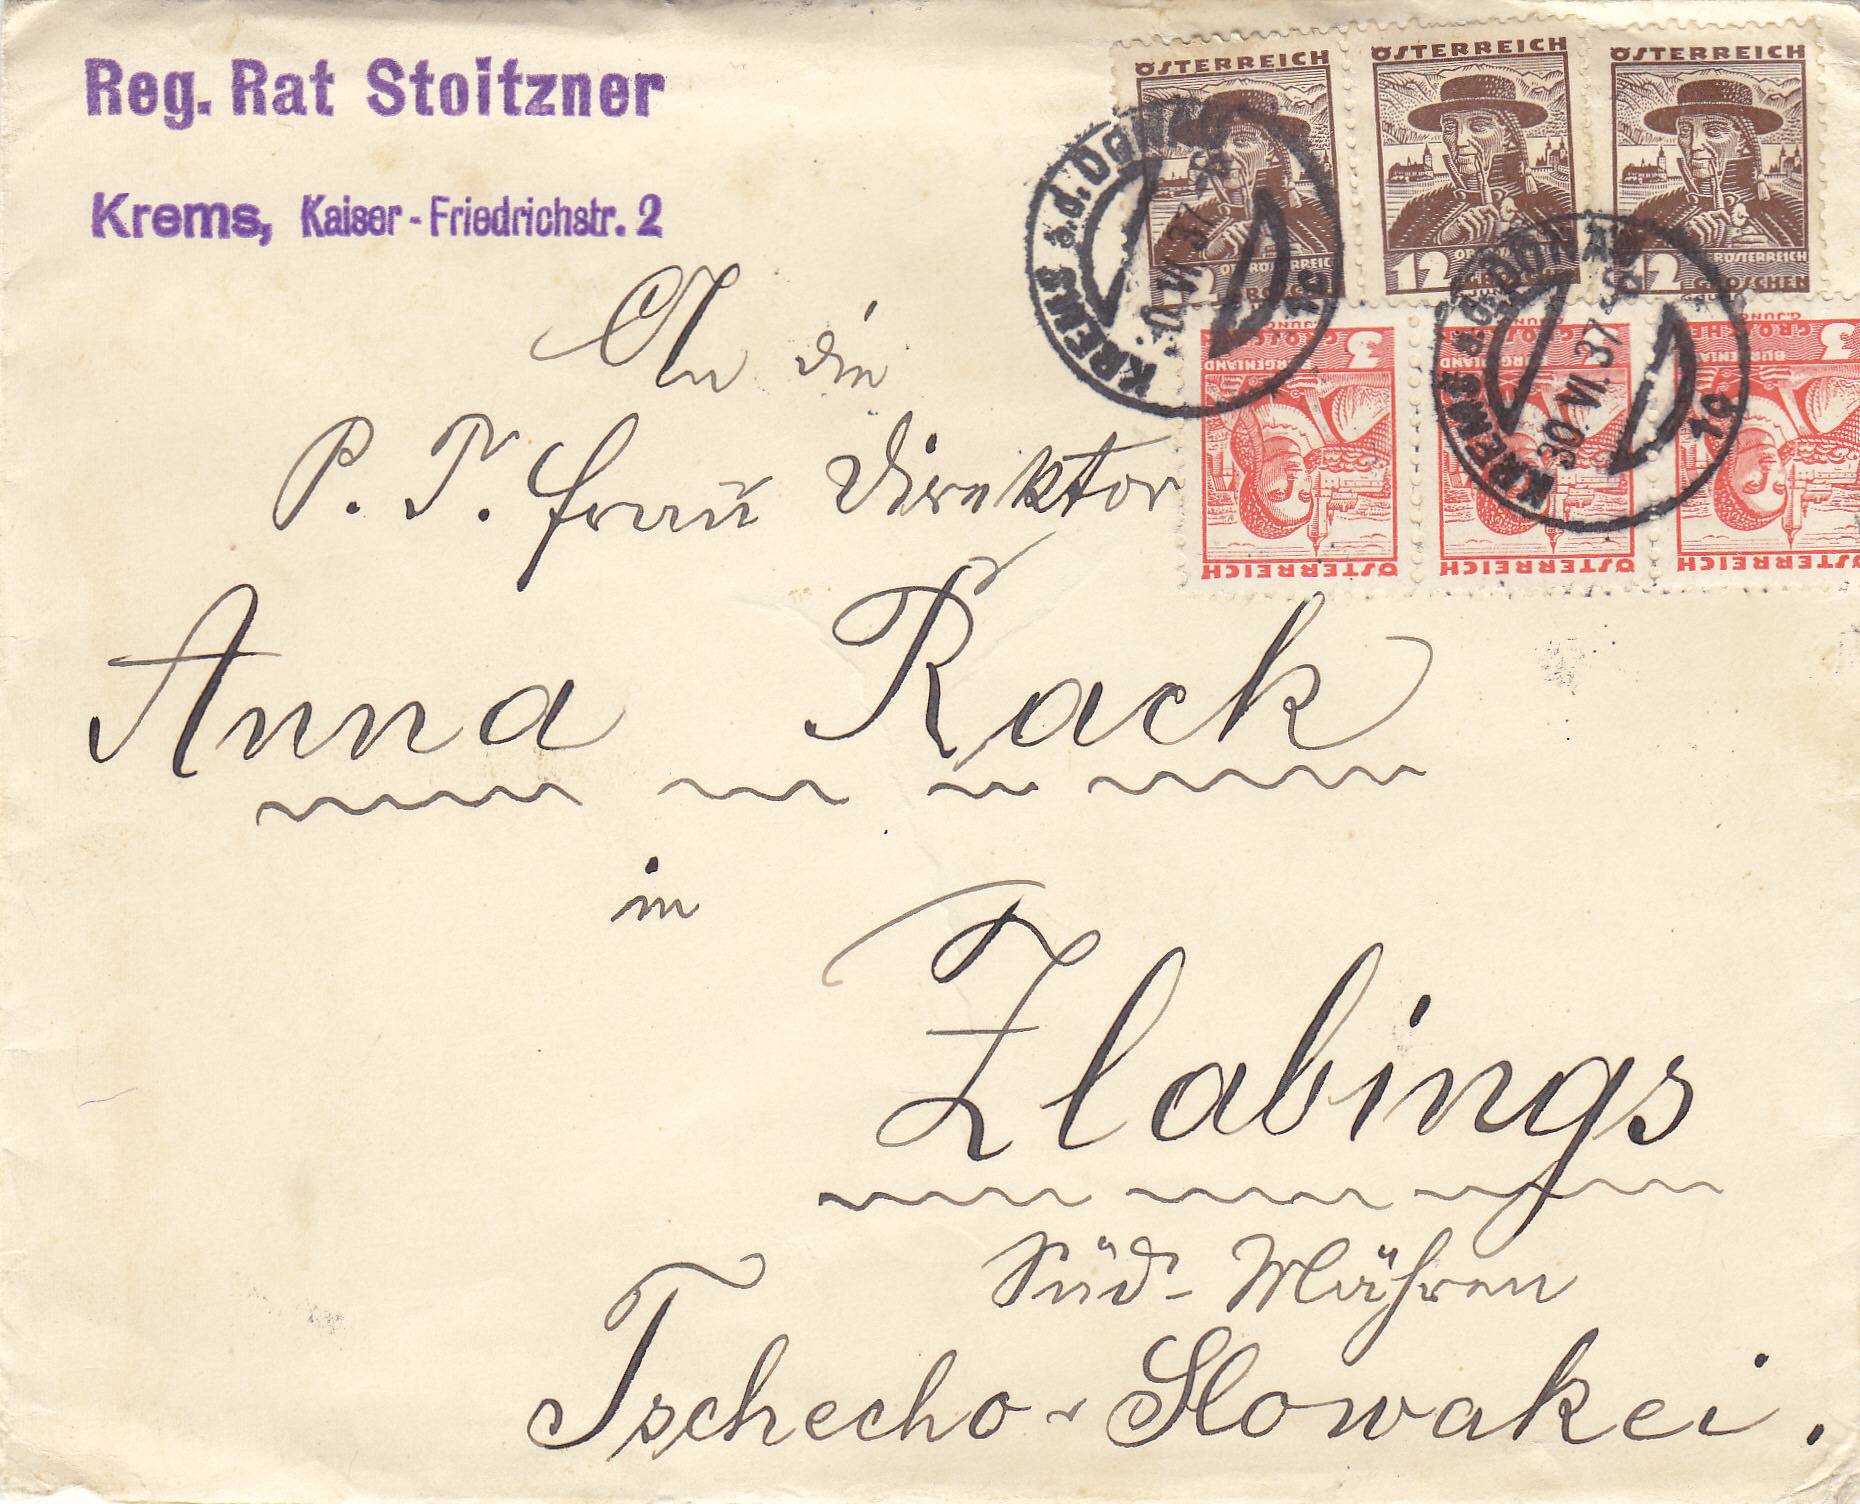 Reg. Rat Stoitzner
Krems, Kaiser-Friedrichstr. 2
ÖSTERREICH ÖSTERREICH ÖSTERREICH
12 12 12
OBERÖSTERREICH
GROSCHEN GROSCHEN GROSCHEN
KREMS a.d. DONAU
30. VI. 37
KREMS a.d. DONAU
30. VI. 37
3 3 3
GROSCHEN GROSCHEN GROSCHEN
BURGENLAND BURGENLAND BURGENLAND
ÖSTERREICH ÖSTERREICH ÖSTERREICH
An die
P. T. Frau Direktor
Anna Rack
in
Zlabings
Süd-Mähren
Tschecho-Slowakei.